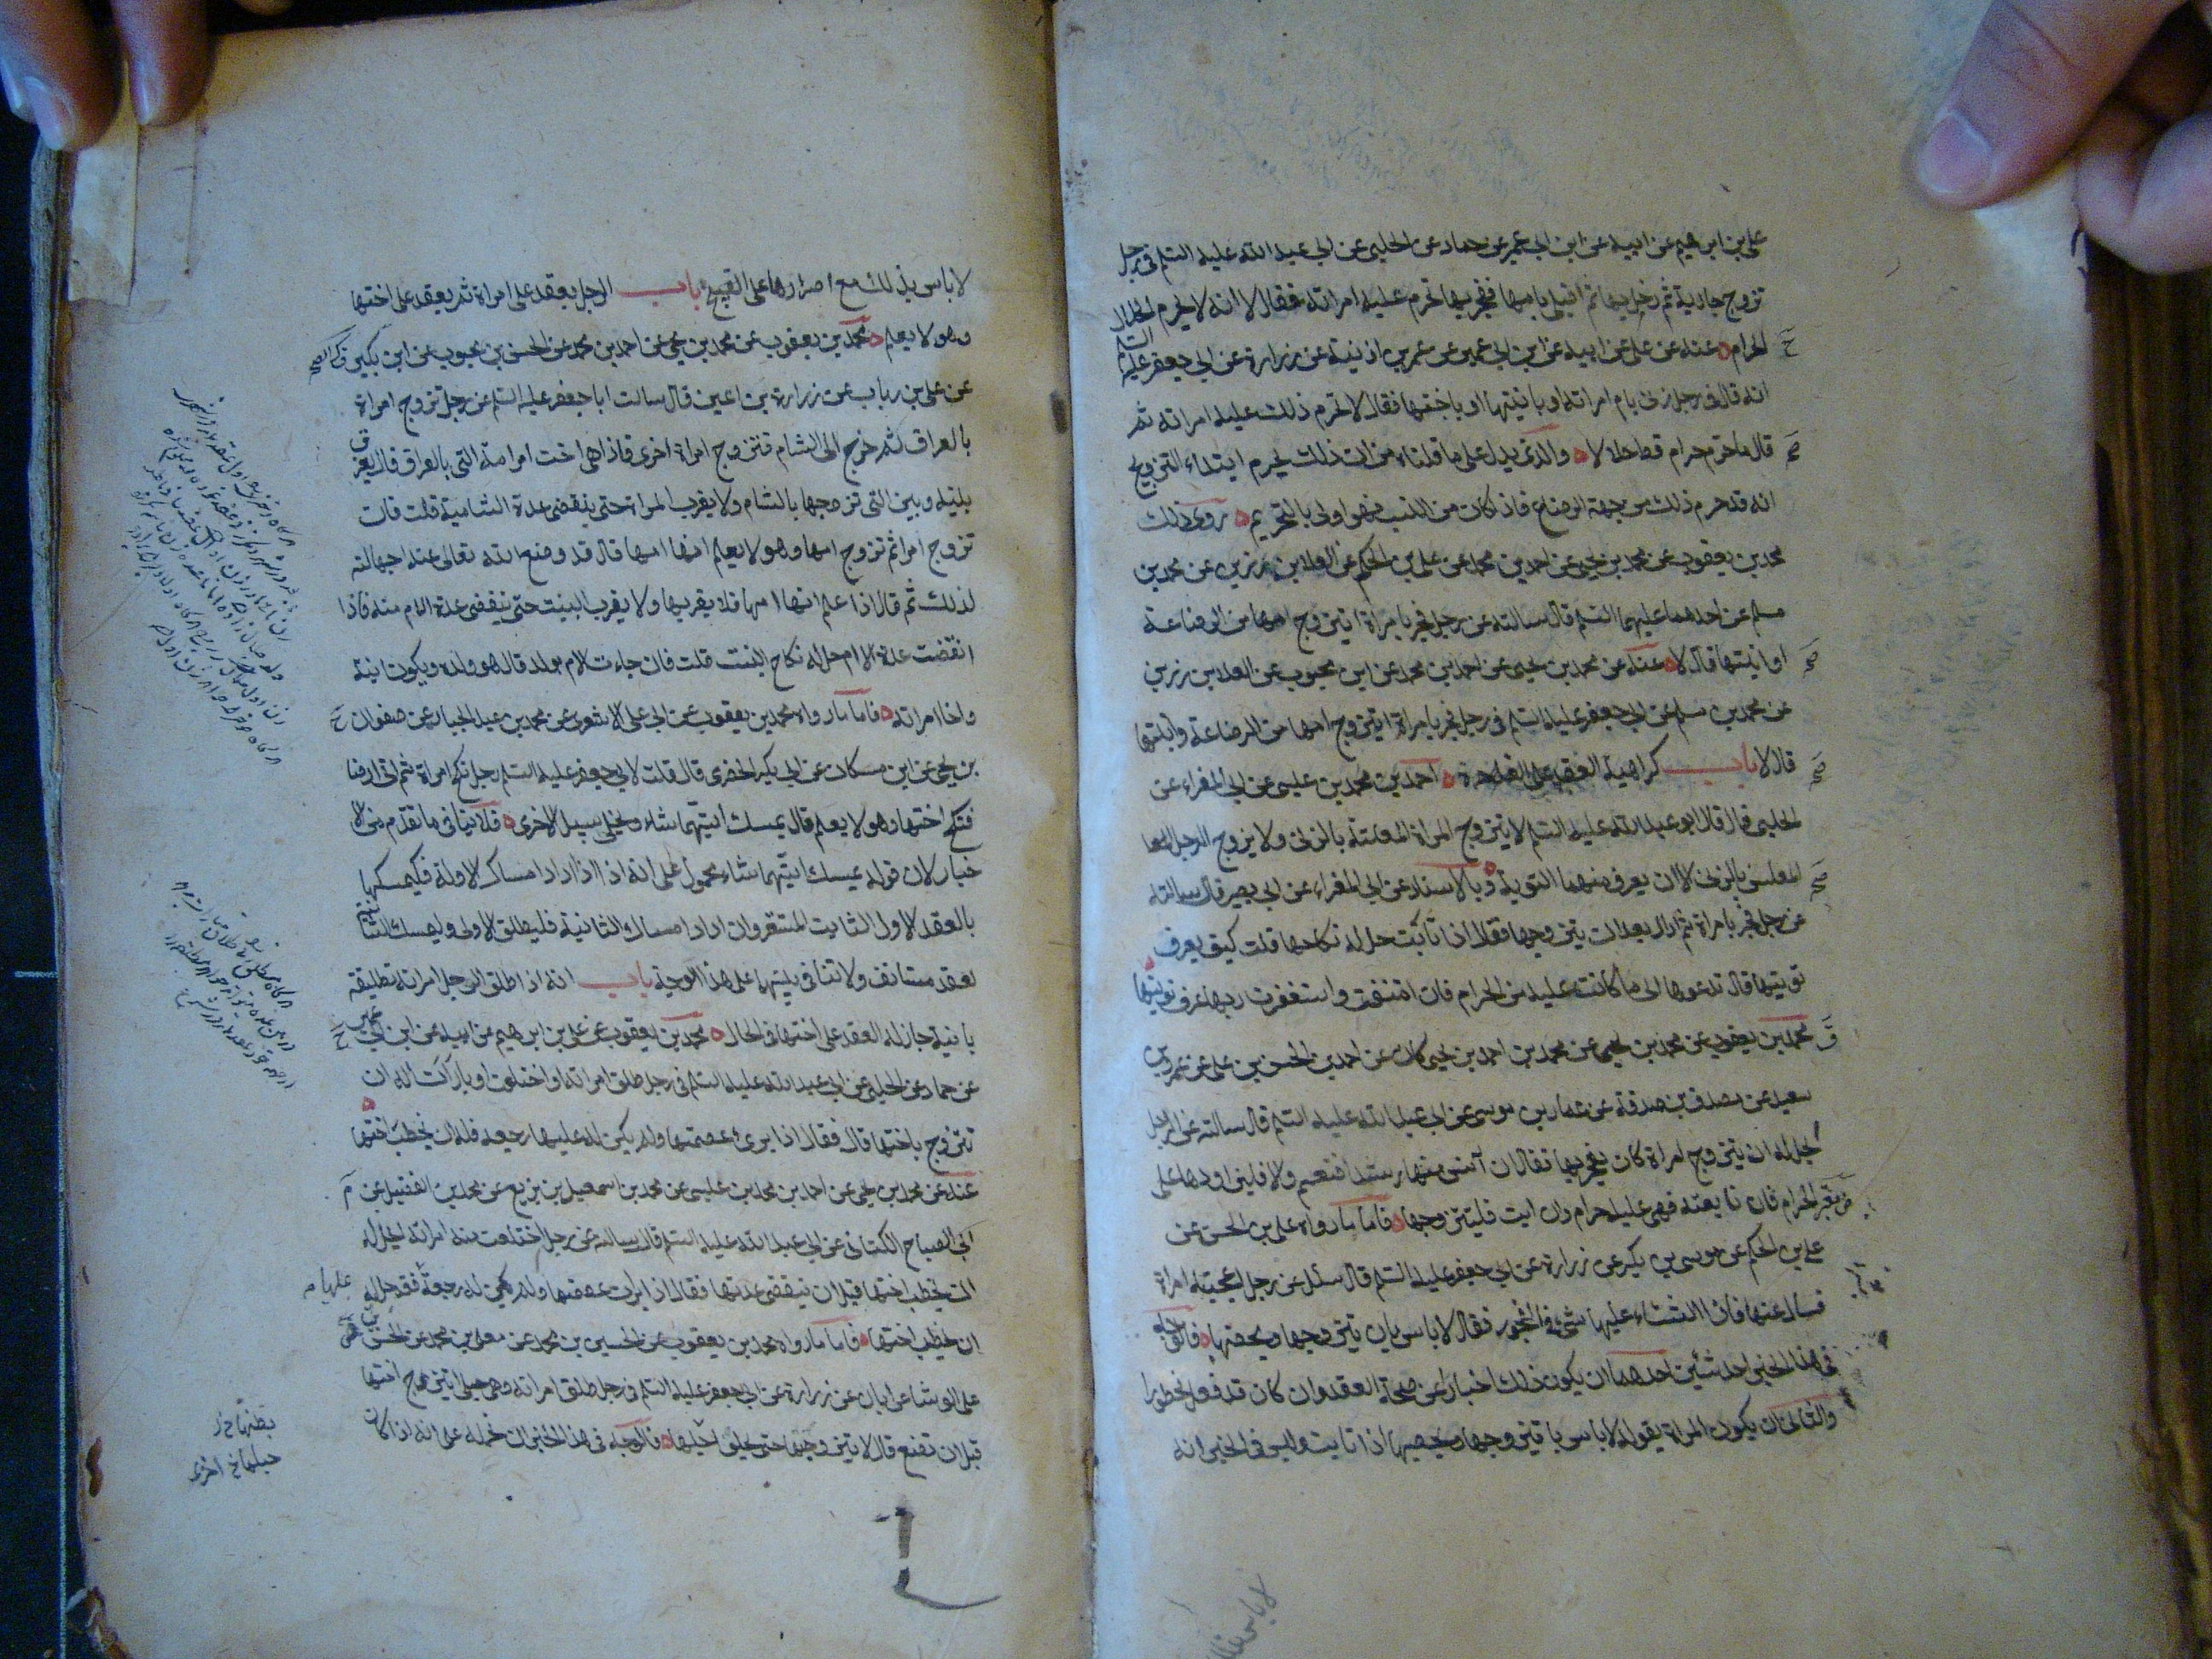 على بن ابرهيم عن ابيه عن ابن ابي عمير عن حماد عن الحلبى عن ابي عبد الله عليه السلم فى رجل
تزوج جارية ثم دخل بها ثم ابتلى بامها ففجر بها تحرم عليه امراته فقال لا انه لا يحرم الحلال
الحرام عنه عن على عن ابيه عن ابن ابي عمير عن عمر بن اذنية عن زرارة عن ابي جعفر عليه السلم
انه قال فى رجل زنى بام امراته او بابنتها او باختها فقال لا تحرم ذلك عليه امراته ثم
قال ما حرم حرام قط حلالا والذى يدل على ما قلناه من ان ذلك يحرم ابتداء التزويج
انه قد حرم ذلك من جهة الرضاع فاذا كان من النسب فهو اولى بالتحريم روى ذلك
محمد بن يعقوب عن محمد بن يحيى عن احمد بن محمد عن على بن الحكم عن العلا بن رزين عن محمد بن
مسلم عن احدهما عليهما السلم قال سالته عن رجل فجر بامراة ايتزوج امها من الرضاعة
او ابنتها قال لا عنه عن محمد بن يحيى عن احمد بن محمد عن ابن محبوب عن العلا بن رزين
عن محمد بن مسلم عن ابي جعفر عليه السلم فى رجل فجر بامراة ايتزوج امها من الرضاعة وابنتها
قال لا باب كراهية العقد على الفاجرة احمد بن محمد بن عيسى عن ابي المغراء عن
الحلبى قال قال ابو عبد الله عليه السلم لا يتزوج المراة المعلنة بالزنى ولا يزوج الرجل
المعلن بالزنى الا ان يعرف منهما التوبة وبالاسناد عن ابي المغراء عن ابي بصير قال سالته
عن رجل فجر بامراة ثم اراد بعد ان يتزوجها فقال اذا تابت حل له نكاحها قلت كيف يعرف
توبتها قال تدعوها الى ما كانت عليه من الحرام فان امتنعت واستغفرت ربها عرف توبتها
محمد بن يعقوب عن محمد بن يحيى عن محمد بن احمد بن يحيى عن احمد بن الحسن بن على عن عمرو بن
سعيد عن مصدق بن صدقة عن عمار بن موسى عن ابي عبد الله عليه السلم قال سالته عن الرجل
ايحل له ان يتزوج امراة كان يفجر بها فقال ان آنس منها رشدا فنعم والا فليراودها على
الحرام فان تابعته فهى عليه حرام وان ابت فليتزوجها فاما ما رواه على بن الحسن عن
على بن الحكم عن موسى بن بكير عن زرارة عن ابي جعفر عليه السلم قال سئل عن رجل اعجبته امراة
فسال عنها فاذا الثناء عليها شىء فى الفجور فقال لا باس بان يتزوجها ويحصنها فالوجه
فى هذا الخبر احد شيئين احدهما ان يكون ذلك اخبارا عن صحة العقد وان كان قد فعل محظورا
والثانى ان يكون المراد بقوله لا باس بان يتزوجها ويحصنها اذا تابت وليس فى الخبر انه
لا باس
لا باس بذلك مع اصرارها على القبيح باب الرجل يعقد على امراة ثم يعقد على اختها
وهو لا يعلم محمد بن يعقوب عن محمد بن يحيى عن احمد بن محمد عن الحسن بن محبوب عن ابن بكير
عن على بن رباب عن زرارة بن اعين قال سالت ابا جعفر عليه السلم عن رجل تزوج امراة
بالعراق ثم خرج الى الشام فتزوج امراة اخرى فاذا هى اخت امراته التى بالعراق قال يفرق
بينه وبين التى تزوجها بالشام ولا يقرب المراة حتى ينقضى عدة الشامية قلت فان
تزوج امراة ثم تزوج امها وهو لا يعلم انها امها قال قد وضع الله تعالى عنه جهالته
لذلك ثم قال اذا علم انها امها فلا يقربها ولا يقرب البنت حتى ينقضى عدة الام منه فاذا
انقضت عدة الام حل له نكاح البنت قلت فان جاءت الام بولد قال هو ولده ويكون ابنه
واخا امراته فاما ما رواه محمد بن يعقوب عن ابي على الاشعرى عن محمد بن عبد الجبار عن صفوان
بن يحيى عن ابن مسكان عن ابي بكير الحضرى قال قلت لابي جعفر عليه السلم رجل نكح امراة ثم اتى ارضا
فنكح اختها وهو لا يعلم قال يمسك ايتهما شاء ويخلى سبيل الاخرى فلا ينافى ما تقدم من الا
خبار لان قوله يمسك ايتهما شاء محمول على انه اذا اراد امساك الاولة فليمسكها
بالعقد الاول الثابت المستقر وان اراد امساك الثانية فليطلق الاولى وليمسك الثانية
بعقد مستانف ولا تنافى بينهما على هذا الوجه باب انه اذا طلق الرجل امراته تطليقة
باينة جاز له العقد على اختها فى الحال محمد بن يعقوب عن على بن ابرهيم عن ابيه عن ابن ابي عمير
عن حماد عن الحلبى عن ابي عبد الله عليه السلم فى رجل طلق امراته او اختلعت او بارات اله ان
يتزوج باختها قال فقال اذا برى عصمتها ولم يكن له عليها رجعة فله ان يخطب اختها
عنه عن محمد بن يحيى عن احمد بن محمد بن عيسى عن محمد بن اسمعيل بن بزيع عن محمد بن الفضيل عن
ابي الصباح الكنانى عن ابي عبد الله عليه السلم قال سالته عن رجل اختلعت منه امراته ايحل له
ان يخطب اختها قبل ان ينقضى عدتها فقال اذا برات عصمتها ولم يكن له رجعة فقد حل له
عليها
ان يخطب اختها فاما ما رواه محمد بن يعقوب عن الحسين بن محمد عن معلى بن محمد عن الحسن بن
على الوشا عن ابان عن زرارة عن ابي جعفر عليه السلم فى رجل طلق امراته وهى حبلى ايتزوج اختها
قبل ان تضع قال لا يتزوجها حتى يخلو اجلها فالوجه فى هذا الخبر ان نحمله على انه اذا كان